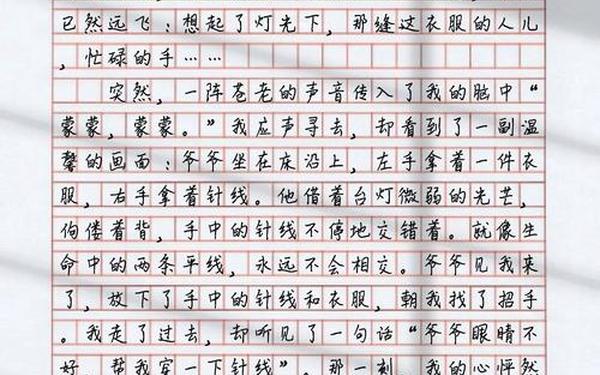 已然远飞：想起了灯光下，那缝过衣服的人儿
，忙碌的手……
突然，一阵苍老的声音传入了我的脑中“
蒙蒙，蒙蒙。”我应声寻去，却看到了一副温
馨的画面：爷爷坐在床沿上，左手拿着一件衣
服，右手拿着针线。他借着台灯微弱的光芒，
佝偻着背，手中的针线不停地交错着。就像生
命中的两条平线，永远不会相交。爷爷见我来
了，放下了手中的针线和衣服，朝我找了招手
。我走了过去，却听见了一句话“爷爷眼睛不
好，帮我穿一下针线”。那一刻，我的心怦然